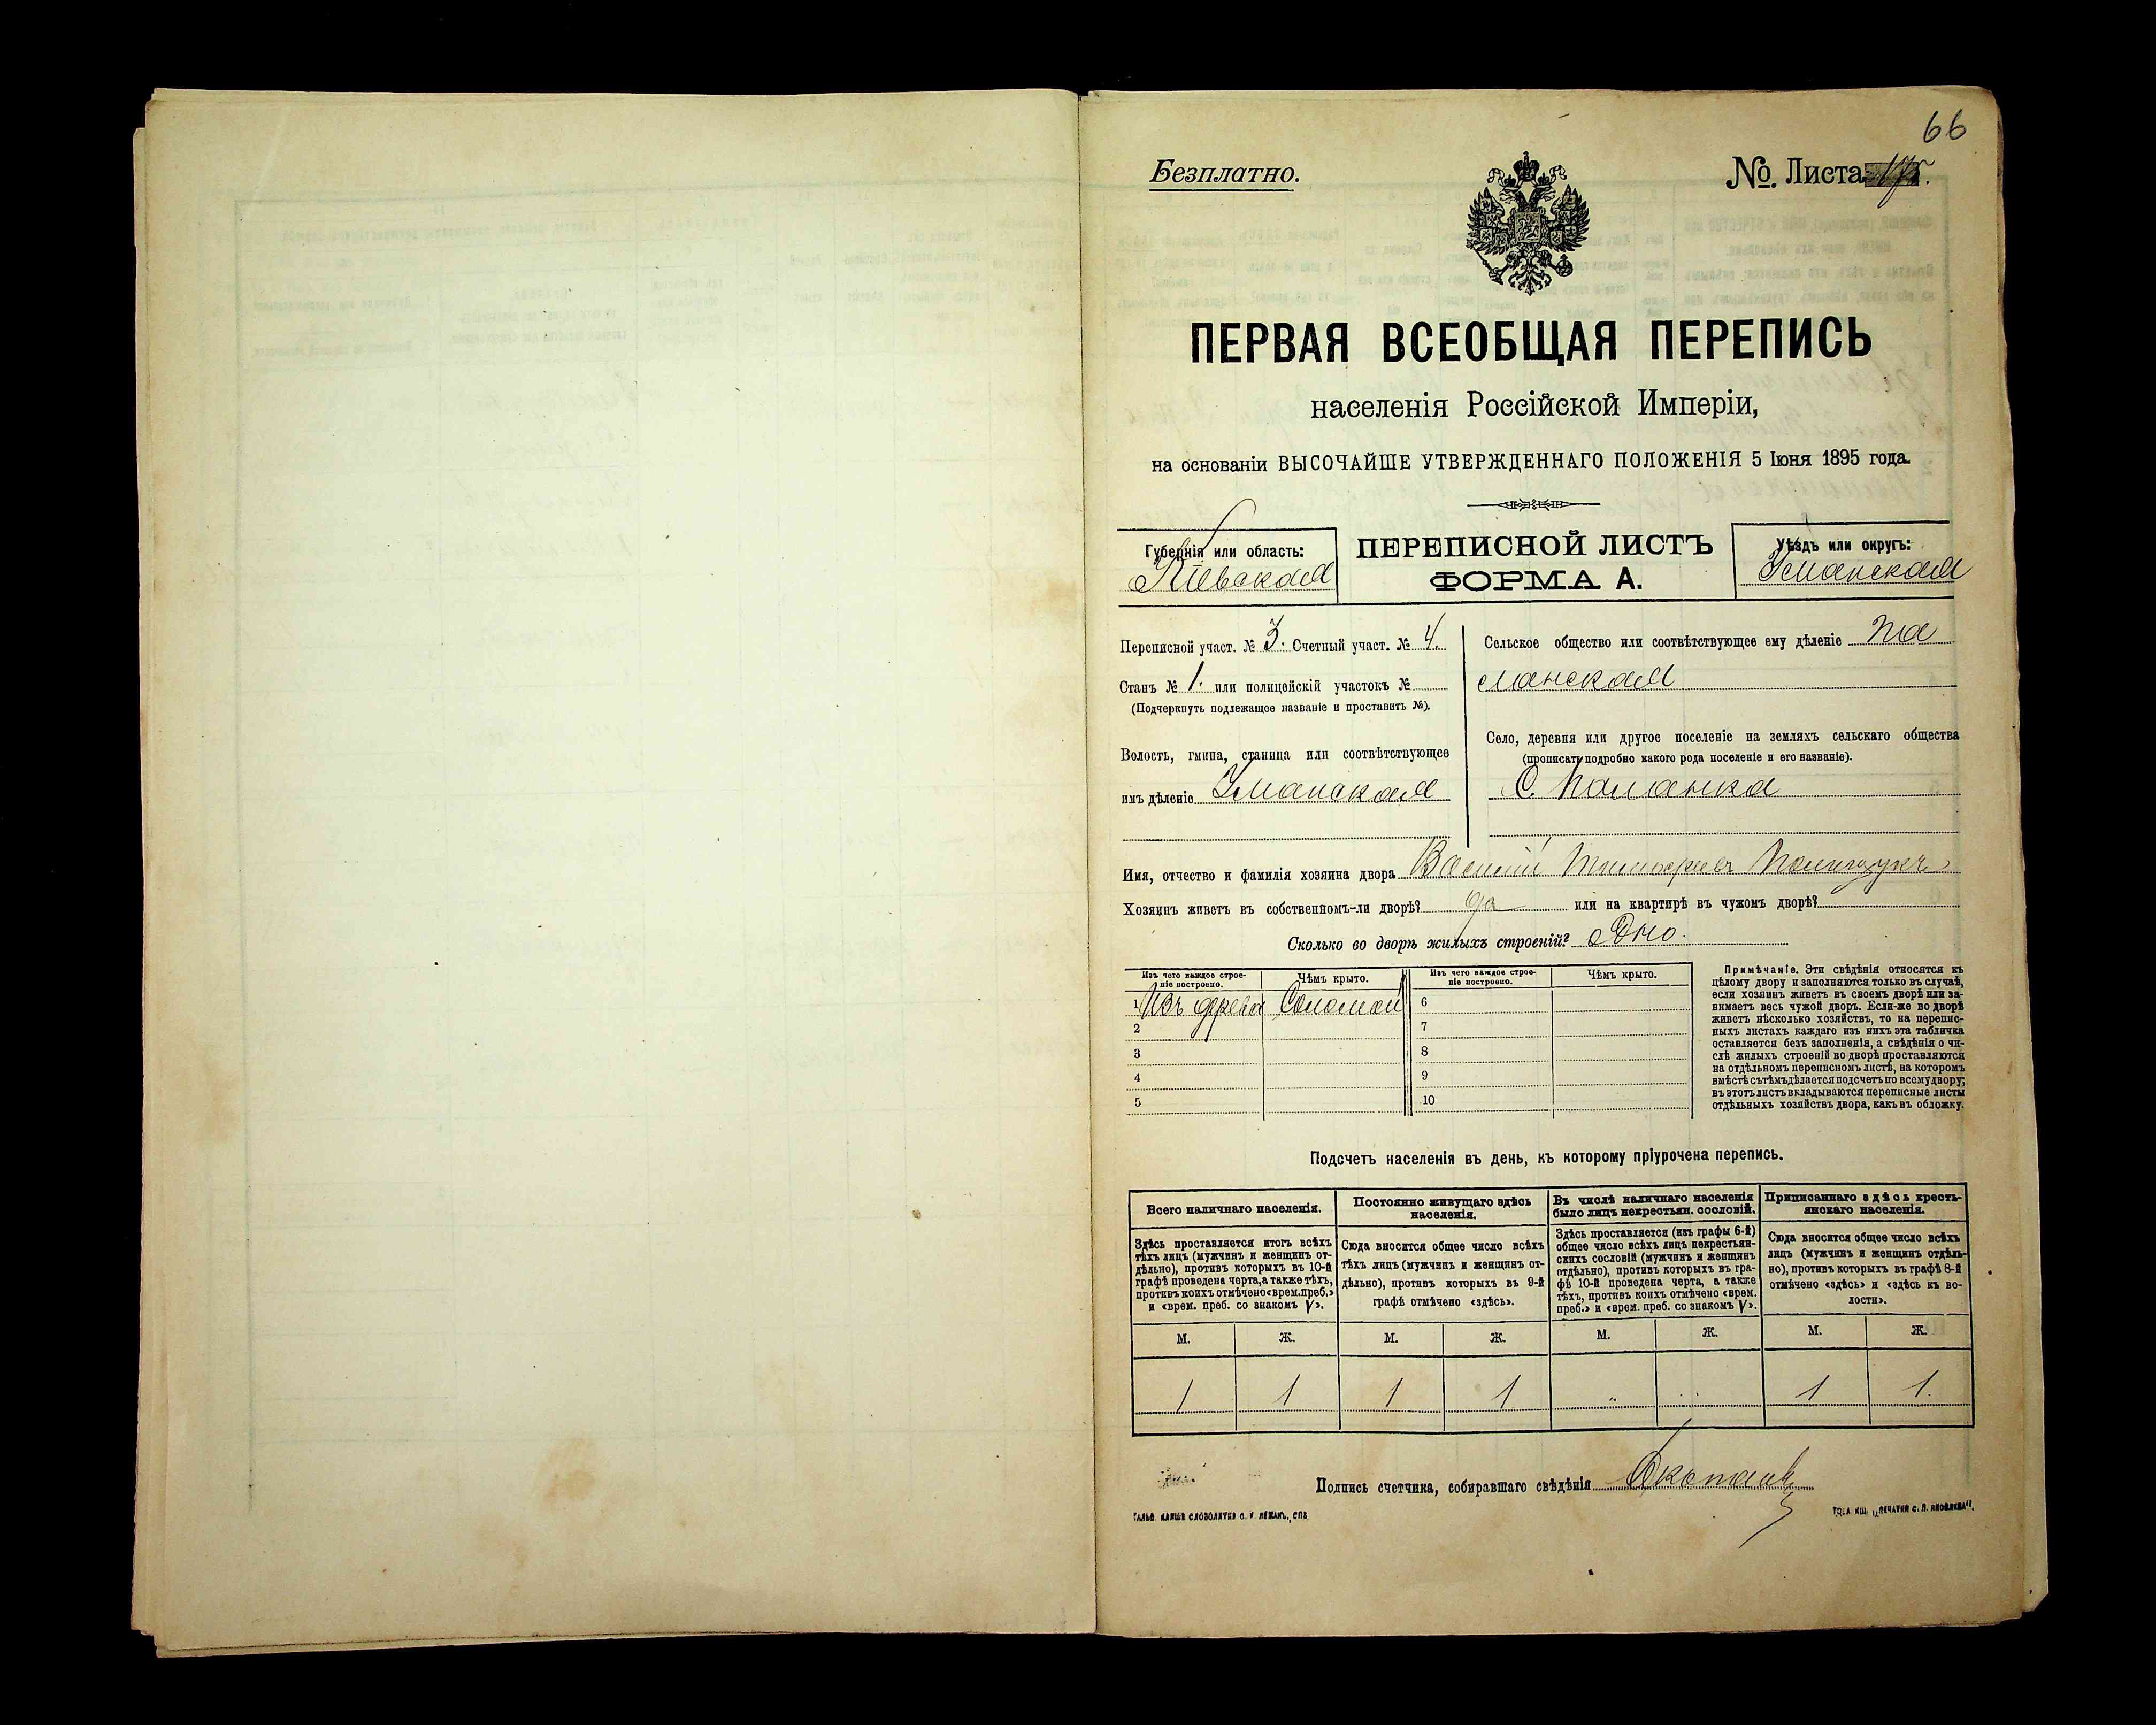 66
Безплатно.
No. Листа
ПЕРВАЯ ВСЕОБЩАЯ ПЕРЕПИСЬ
населенія Россійской Имперіи,
на основаніи ВЫСОЧАЙШЕ УТВЕРЖДЕННАГО ПОЛОЖЕНІЯ 5 Іюня 1895 года.
Губернія или область:
Кіевская
ПЕРЕПИСНОЙ ЛИСТЪ
ФОРМА А.
Уѣздъ или округъ:
Уманская
Переписной участ. № 3. Счетный участ. № 4.
Станъ № 1. или полицейскій участокъ №
(Подчеркнуть подлежащее названіе и проставить №).
Волость, гмина, станица или соотвѣтствующее
имъ дѣленіе Уманская
Сельское общество или соотвѣтствующее ему дѣленіе Па
ланская
Село, деревня или другое поселеніе на земляхъ сельскаго общества
(прописать подробно какого рода поселеніе и его названіе).
С. Паланка
Имя, отчество и фамилія хозяина двора Василій Тимофеевъ Полищукъ
Хозяинъ живетъ въ собственномъ-ли дворѣ? да или на квартирѣ въ чужомъ дворѣ?
Сколько во дворѣ жилыхъ строеній? Одно.
Изъ чего каждое строеніе построено. Чѣмъ крыто. Изъ чего каждое строеніе построено. Чѣмъ крыто.
1 Изъ дерева Соломой 6
2 7
3 8
4 9
5 10
Примѣчаніе. Эти свѣдѣнія относятся къ
цѣлому двору и заполняются только въ случаѣ,
если хозяинъ живетъ въ своемъ дворѣ или за-
нимаетъ весь чужой дворъ. Если-же во дворѣ
живетъ нѣсколько хозяйствъ, то на перепис-
ныхъ листахъ каждаго изъ нихъ эта табличка
оставляется безъ заполненія, а свѣдѣнія о чи-
слѣ жилыхъ строеній во дворѣ проставляются
на отдѣльномъ переписномъ листѣ, на которомъ
вмѣстѣ съ тѣмъ дѣлается подсчетъ по всему двору;
въ этотъ листъ вкладываются переписные листы
отдѣльныхъ хозяйствъ двора, какъ въ обложку.
Подсчетъ населенія въ день, къ которому пріурочена перепись.
Всего наличнаго населенія.
Здѣсь проставляется итогъ всѣхъ
тѣхъ лицъ (мужчинъ и женщинъ от-
дѣльно), противъ которыхъ въ 10-й
графѣ проведена черта, а также тѣхъ,
противъ коихъ отмѣчено «врем. преб.»
и «врем. преб. со знакомъ V».
Постоянно живущаго здѣсь
населенія.
Сюда вносится общее число всѣхъ
тѣхъ лицъ (мужчинъ и женщинъ от-
дѣльно), противъ которыхъ въ 9-й
графѣ отмѣчено «здѣсь».
Въ числѣ наличнаго населенія
было лицъ некрестьян. сословій.
Здѣсь проставляется (изъ графы 6-й)
общее число всѣхъ лицъ некрестьян-
скихъ сословій (мужчинъ и женщинъ
отдѣльно), противъ которыхъ въ гра-
фѣ 10-й проведена черта, а также
тѣхъ, противъ коихъ отмѣчено «врем.
преб.» и «врем. преб. со знакомъ V».
Приписаннаго здѣсь кресть-
янскаго населенія.
Сюда вносится общее число всѣхъ
лицъ (мужчинъ и женщинъ отдѣль-
но), противъ которыхъ въ графѣ 8-й
отмѣчено «здѣсь» и «здѣсь къ во-
лости».
М. Ж. М. Ж. М. Ж. М. Ж.
1 1 1 1 " .. 1 1.
Подпись счетчика, собиравшаго свѣдѣнія
ГАЛЬВ. КЛИШЕ СЛОВОЛИТНИ О. И. ЛЕМАНЪ, СПБ